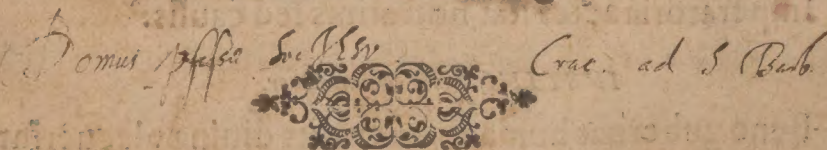 Domus Professæ Soc Jesu Crac. ad S Barb.